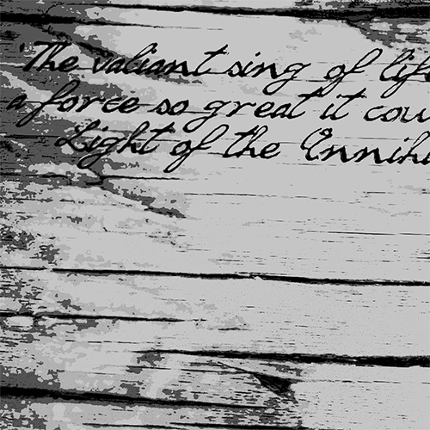 'The valiant sing of life
a force so great it cou
Light of the